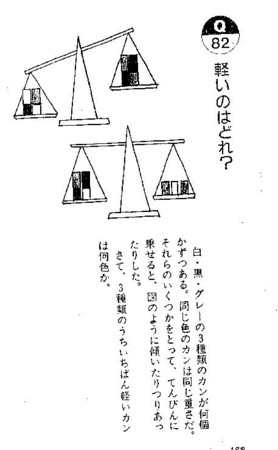 Q
82
軽いのはどれ?
白・黒・グレーの3種類のカンが何個
かずつある。同じ色のカンは同じ重さだ。
それらのいくつかをとって、てんびんに
乗せると、図のように傾いたりつりあっ
たりした。
さて、3種類のうちいちばん軽いカン
は何色か。